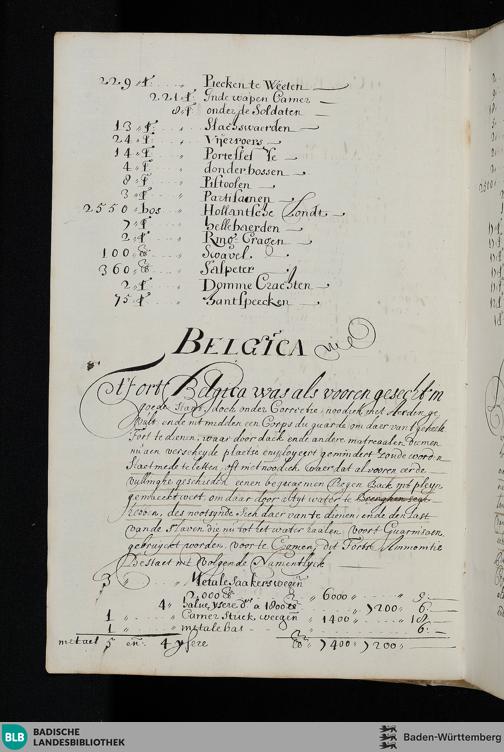 229 st. Piecken te Weeten
221 st Inde wapen Camer
8 st onder de Soldaten
13 st. Slachswaerden
24 st. Vijervoers
14 st.
4 st. donderbossen
8 st Pistoolen
3 st. Partisainen
2550 bos Hollantsche Londt
7 st. hellebaerden
2 st. Ring Cragen
100 lb Swavel
360 lb Salpeter
2 st. Domme Crachten
75 st. hantspeecken
BELGICA
t' fort Belgica was als vooren geseght in
goede staet, doch onder Correctie, noodich met Aerden ge
vult, ende int midden een Corps du guarde om daer van
Fort te dienen, waer door dack ende andere matreaalen
verscheyde plaetse employeert gemindert zoude worden
Staet mede te letten, oft niet noodich waer, dat al vooren eerde
geschiedt eenen bequaemen Regen Back
gemaeckt wert, om daer door altyt water te
des nootsynde sich daer van te dienen, ende den last
vande Slaven die nu tot het water haalen, voort Guarnisoen
gebruyckt worden, voor te Comen, dit Forts Ammonitie
Bestaet mt volgende Namentlyck
3 Metale Saakers wegen
2000 lb 6000
4 yсere 1800 lb 7200 6
1 Camer Stuck wegen 1400 18
1 metale bas 6
metael 5 en 4 ysere lb 7400 7200
BLB
BADISCHE
LANDESBIBLIOTHEK
Baden-Württemberg